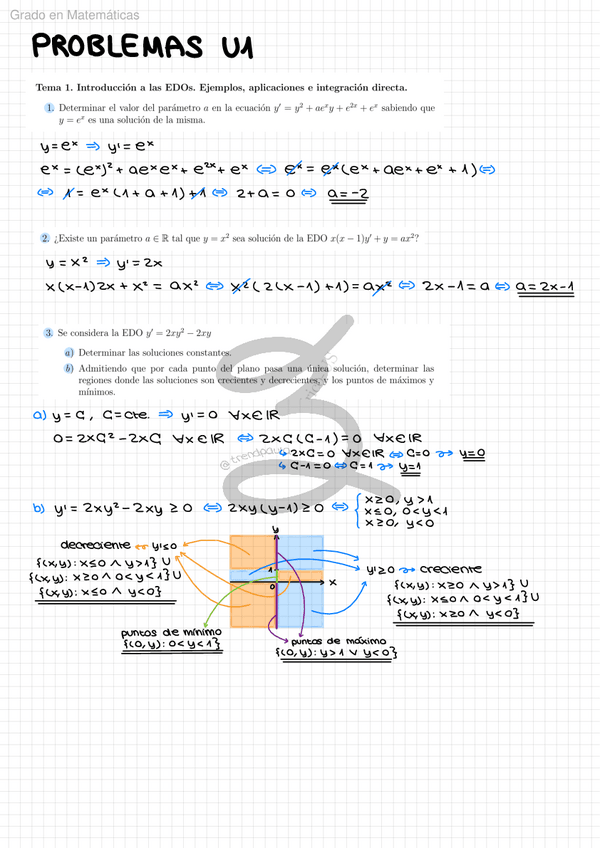 Grado en Matemáticas
PROBLEMAS U1
Tema 1. Introducción a las EDOs. Ejemplos, aplicaciones e integración directa.
1. Determinar el valor del parámetro a en la ecuación y' = y² + aeˣy + e²ˣ + eˣ sabiendo que
y = eˣ es una solución de la misma.
y = eˣ ⇒ y' = eˣ
eˣ = (eˣ)² + aeˣeˣ + e²ˣ + eˣ ⇔ eˣ = eˣ(eˣ + aeˣ + eˣ + 1) ⇔
⇔ 1 = eˣ(1 + a + 1) + 1 ⇔ 2 + a = 0 ⇔ a = -2
2. ¿Existe un parámetro a ∈ ℝ tal que y = x² sea solución de la EDO x(x − 1)y' + y = ax²?
y = x² ⇒ y' = 2x
x(x-1)2x + x² = ax² ⇔ x²(2(x-1)+1) = ax² ⇔ 2x-1 = a ⇔ a = 2x-1
3. Se considera la EDO y' = 2xy² − 2xy
a) Determinar las soluciones constantes.
b) Admitiendo que por cada punto del plano pasa una única solución, determinar las
regiones donde las soluciones son crecientes y decrecientes, y los puntos de máximos y
mínimos.
@trendpaula
a) y = C, C = cte. ⇒ y' = 0 ∀x∈ℝ
0 = 2xC² - 2xC ∀x∈ℝ ⇔ 2xC(C-1) = 0 ∀x∈ℝ
↳ 2xC = 0 ∀x∈ℝ ⇔ C = 0 ⤳ y = 0
↳ C-1 = 0 ⇔ C = 1 ⤳ y = 1
b) y' = 2xy² - 2xy ≥ 0 ⇔ 2xy(y-1) ≥ 0 ⇔ { x≥0, y>1
x≤0, 0<y<1
x≥0, y<0
y
decreciente y'≤0
{(x,y): x≤0 ∧ y>1} ∪
{(x,y): x≥0 ∧ 0<y<1} ∪
{(x,y): x≤0 ∧ y<0}
1
0
x
y'≥0 ⤳ creciente
{(x,y): x≥0 ∧ y>1}
{(x,y): x≤0 ∧ 0<y<1} ∪
{(x,y): x≥0 ∧ y<0}
puntos de mínimo
{(0,y): 0<y<1}
puntos de máximo
{(0,y): y>1 ∨ y<0}